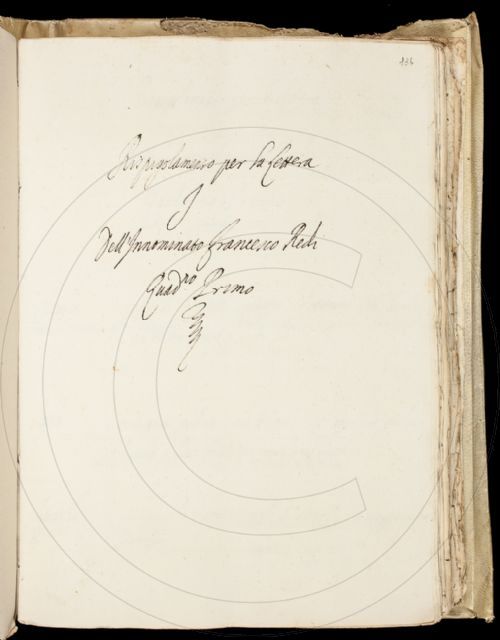 136
Rispigolamento per la lettera
I
Dell'Innominato Francesco Redi
Quad.no Primo